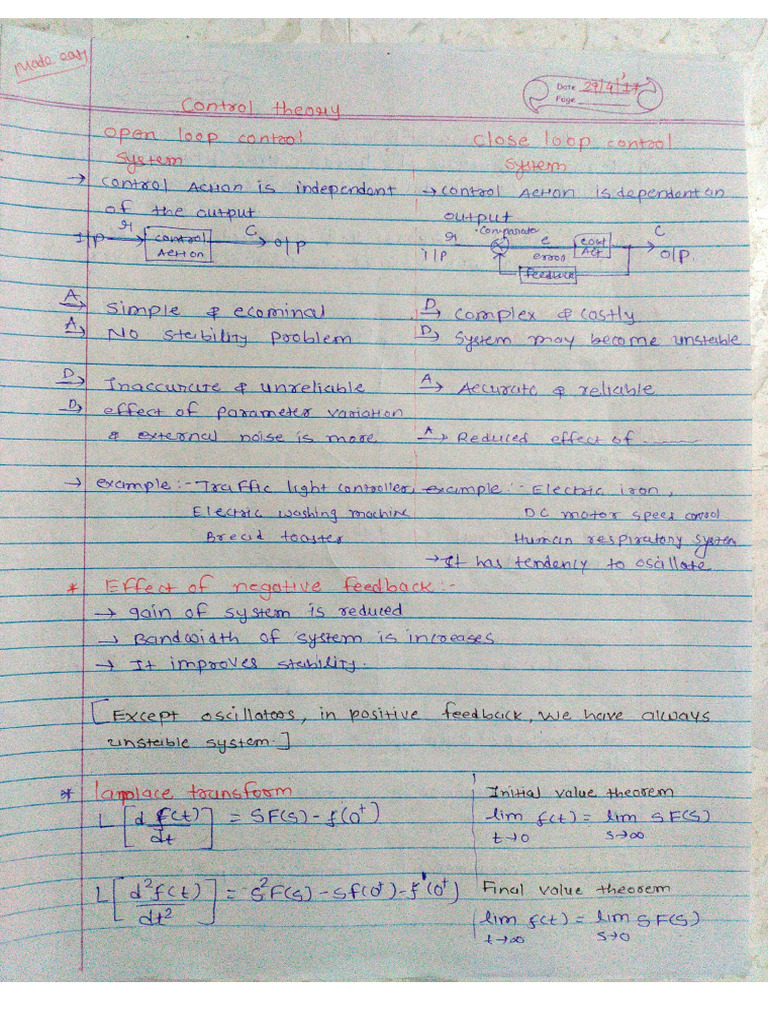 Made easy
Date 29/4/17
Page
Control theory
open loop control
system
close loop control
system
→ control Action is independant
of the output
→ control Action is dependant on
output
I/P r control Action C O/P
i/p r comparator e error cont Act C O/P.
feedback
A→ Simple & ecominal
D→ complex & costly
A→ No stability problem
D→ System may become unstable
D→ Inaccurate & unreliable
A→ Accurate & reliable
D→ effect of parameter variation
& external noise is more
A→ Reduced effect of ———
→ example:- Traffic light controller,
Electric washing machine
Bread toaster
example:- Electric iron,
DC motor speed control
Human respiratory system
→ It has tendency to oscillate
* Effect of negative feedback:-
→ gain of system is reduced
→ Bandwidth of system is increases
→ It improves stability.
[Except oscillatoos, in positive feedback, we have always
unstable system.]
* laplace transform
L[d f(t)/dt] = SF(s) - f(0⁺)
L[d²f(t)/dt²] = s²F(s) - sf(0⁺) - f'(0⁺)
Initial value theorem
lim f(t) = lim SF(s)
t→0 s→∞
Final value theorem
lim f(t) = lim SF(s)
t→∞ s→0